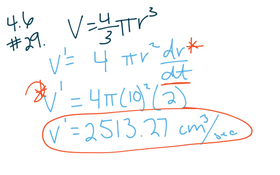 4.6
#29. V = 4/3 πr³
V' = 4 πr² dr/dt *
* V' = 4π(10)²(2)
V' = 2513.27 cm³/sec